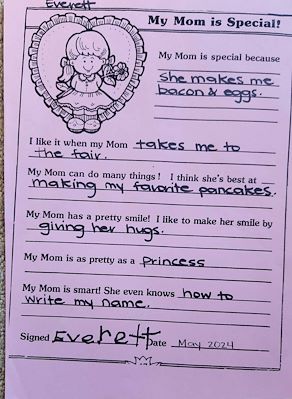 Everett
My Mom is Special!
My Mom is special because
she makes me
bacon & eggs.
I like it when my Mom takes me to
the fair.
My Mom can do many things! I think she's best at
making my favorite pancakes.
My Mom has a pretty smile! I like to make her smile by
giving her hugs.
My Mom is as pretty as a princess
My Mom is smart! She even knows how to
write my name.
Signed Everett Date May 2024